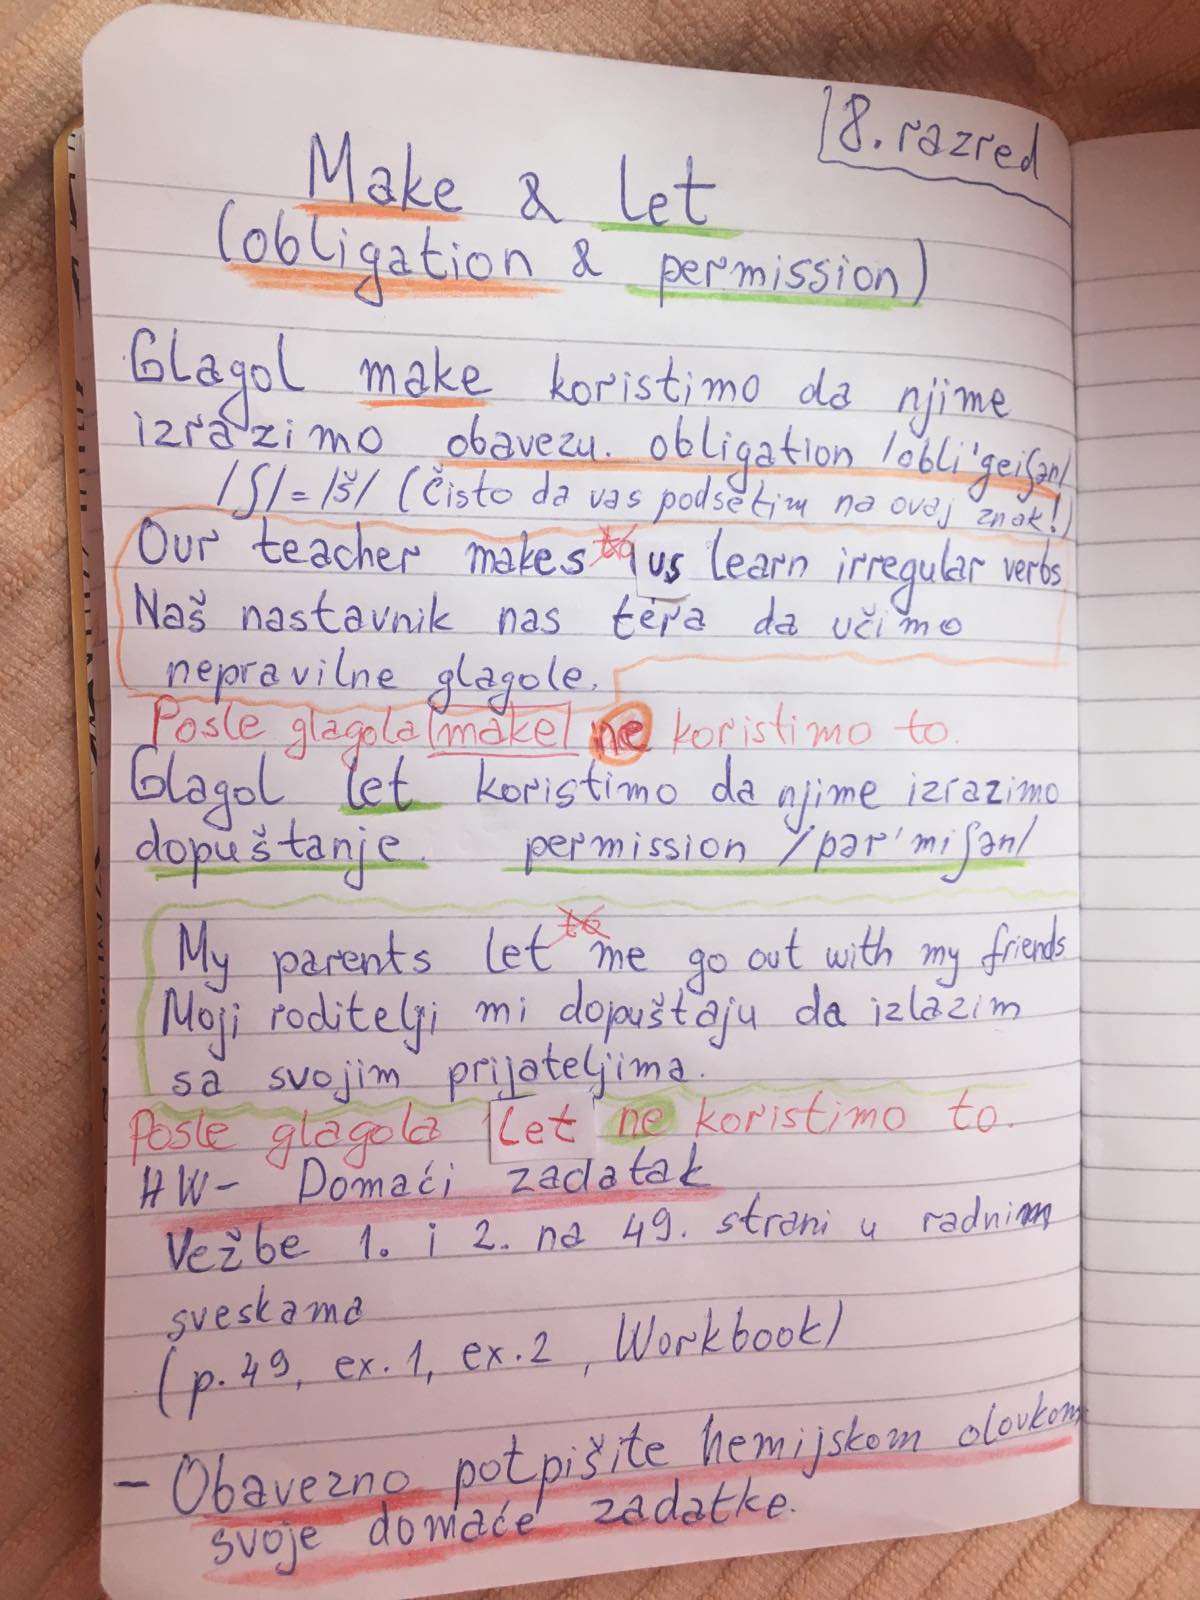 8. razred
Make & let
(obligation & permission)
Glagol make koristimo da njime
izrazimo obavezu. obligation /obli'geiʃən/
/ʃ/ = /š/ (Čisto da vas podsetim na ovaj znak!)
Our teacher makes to us learn irregular verbs
Naš nastavnik nas tera da učimo
nepravilne glagole.
Posle glagola make ne koristimo to.
Glagol let koristimo da njime izrazimo
dopuštanje. permission /pər'miʃən/
My parents let to me go out with my friends
Moji roditelji mi dopuštaju da izlazim
sa svojim prijateljima.
Posle glagola let ne koristimo to.
HW- Domaći zadatak
Vežbe 1. i 2. na 49. strani u radnim
sveskama
(p. 49, ex. 1, ex. 2, Workbook)
- Obavezno potpišite hemijskom olovkom
svoje domaće zadatke.